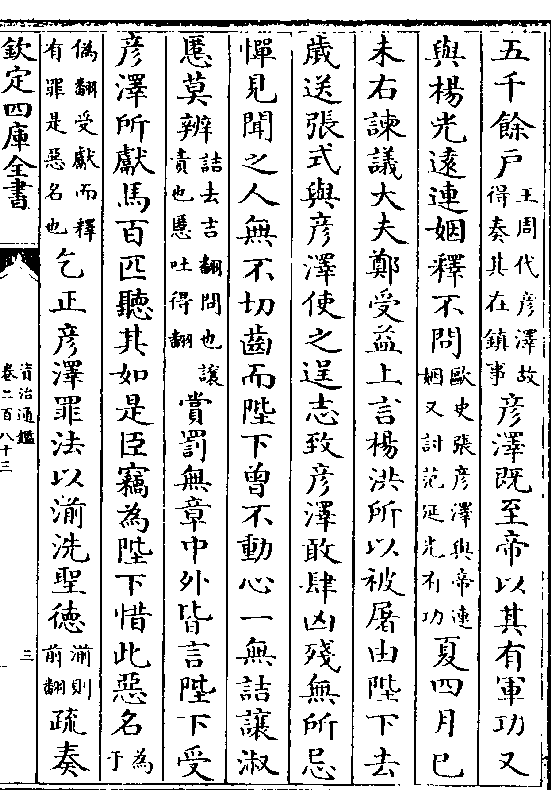 五千餘户王周代彦澤故得奏其在鎮事彦澤既至帝以其有軍功又
與楊光逺連姻釋不問歐史張彦澤與帝連姻又討范延光有功夏四月已
未右諫議大夫鄭受益上言楊洪所以被屠由陛下去
歳送張式與彦澤使之逞志致彦澤敢肆凶殘無所忌
憚見聞之人無不切齒而陛下曾不動心一無詰讓淑
慝莫辨詰去吉翻問也讓責也慝吐得翻賞罰無章中外皆言陛下受
彦澤所獻馬百匹聽其如是臣竊為陛下惜此惡名為于
偽翻受獻而釋有罪是惡名也乞正彦澤罪法以湔洗聖徳湔則前翻疏奏
欽定四庫全書
資治通鑑
卷二百八十三
三